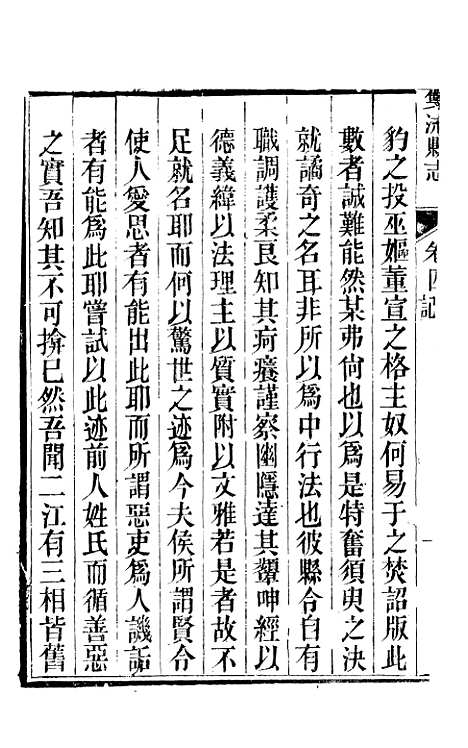 雙流縣志 卷四 記
豹之投巫嫗董宣之格主奴何易于之焚詔版此
數者誠難能然某弗尙也以爲是特奮須臾之決
就譎奇之名耳非所以爲中行法也彼縣令自有
職調護柔良知其疴癢謹察幽隱達其顰呻經以
德義緯以法理主以質實附以文雅若是者故不
足就名耶而何以驚世之迹爲今夫侯所謂賢令
使人愛思者有能出此耶而所謂惡吏爲人譏詬
者有能爲此耶嘗試以此迹前人姓氏而循善惡
之實吾知其不可揜已然吾聞二江有三相皆舊